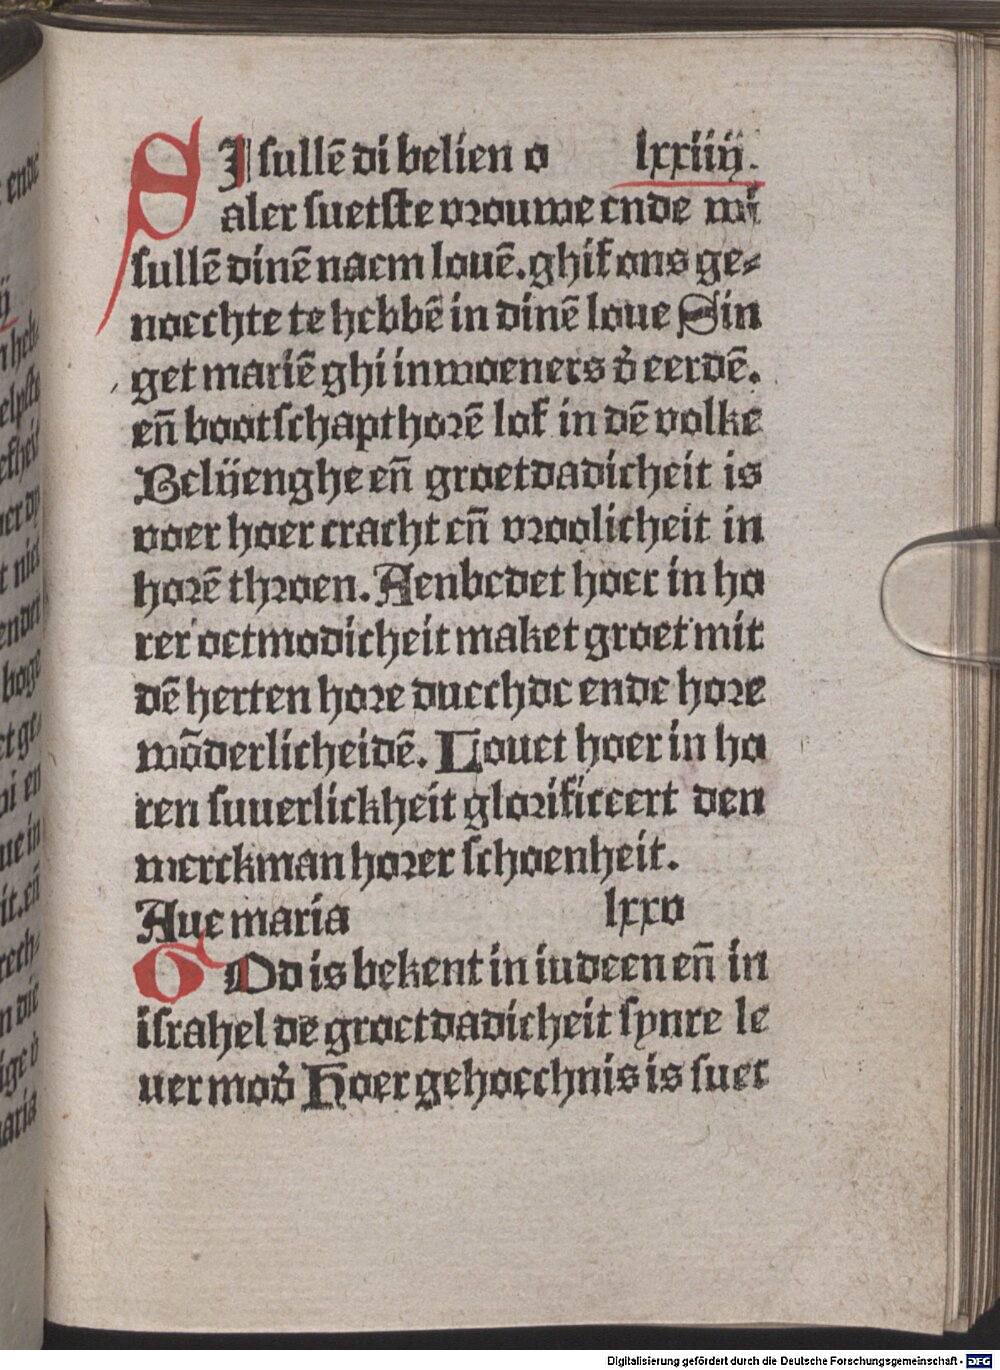 SI sullē di belien o lxxiiij.
aler suetste vrouwe ende wi
sullē dinē naem louē. ghif ons ge⸗
noechte te hebbē in dinē loue Sin
get mariē ghi inwoeners d̉ eerdē.
en̄ bootschapt horē lof in dē volke
Belijenghe en̄ groetdadicheit is
voer hoer cracht en̄ vroolicheit in
horē throen. Aenbedet hoer in ho
rer oetmodicheit maket groet mit
dē herten hore duechde ende hore
wōderlicheidē. Louet hoer in ho
ren suuerlickheit glorificeert den
werckman horer schoenheit.
Aue maria lxxv
GOd is bekent in iudeen en̄ in
israhel de groetdadicheit synre le
uer mod̉ Hoer gehoechnis is suet
Digitalisierung gefördert durch die Deutsche Forschungsgemeinschaft - DFG